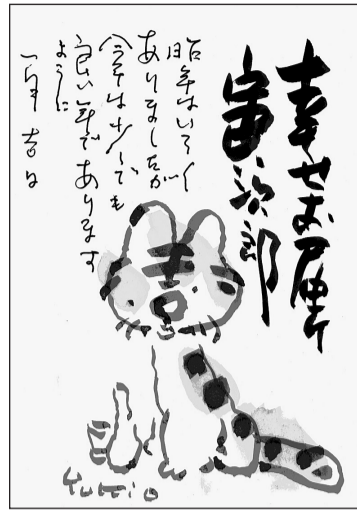 幸せお届け
寅次郎
昨年はいろ〱
ありましたが
今年は少しでも
良い年であります
ように
一月吉日